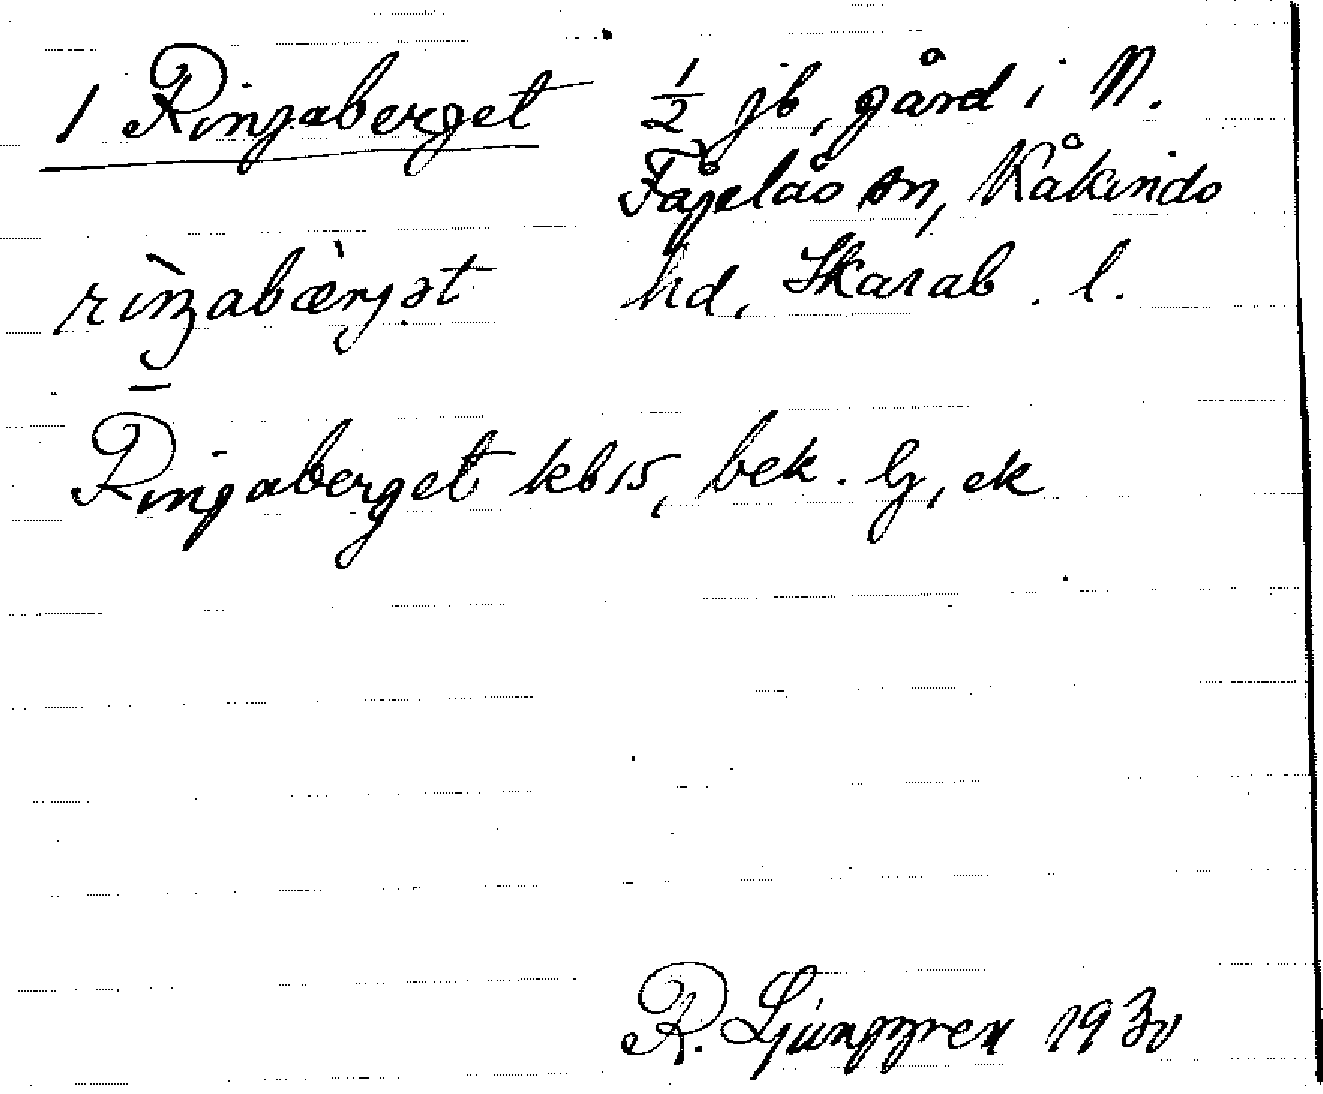 1 Ringaberget ½ jb, gård i N.
Fågelås sn, Kåkinds
rìŋabæ̀rjət hd, Skarab. l.
Ringaberget kb 15, bek. lg, ek
R. Ljunggren 1930